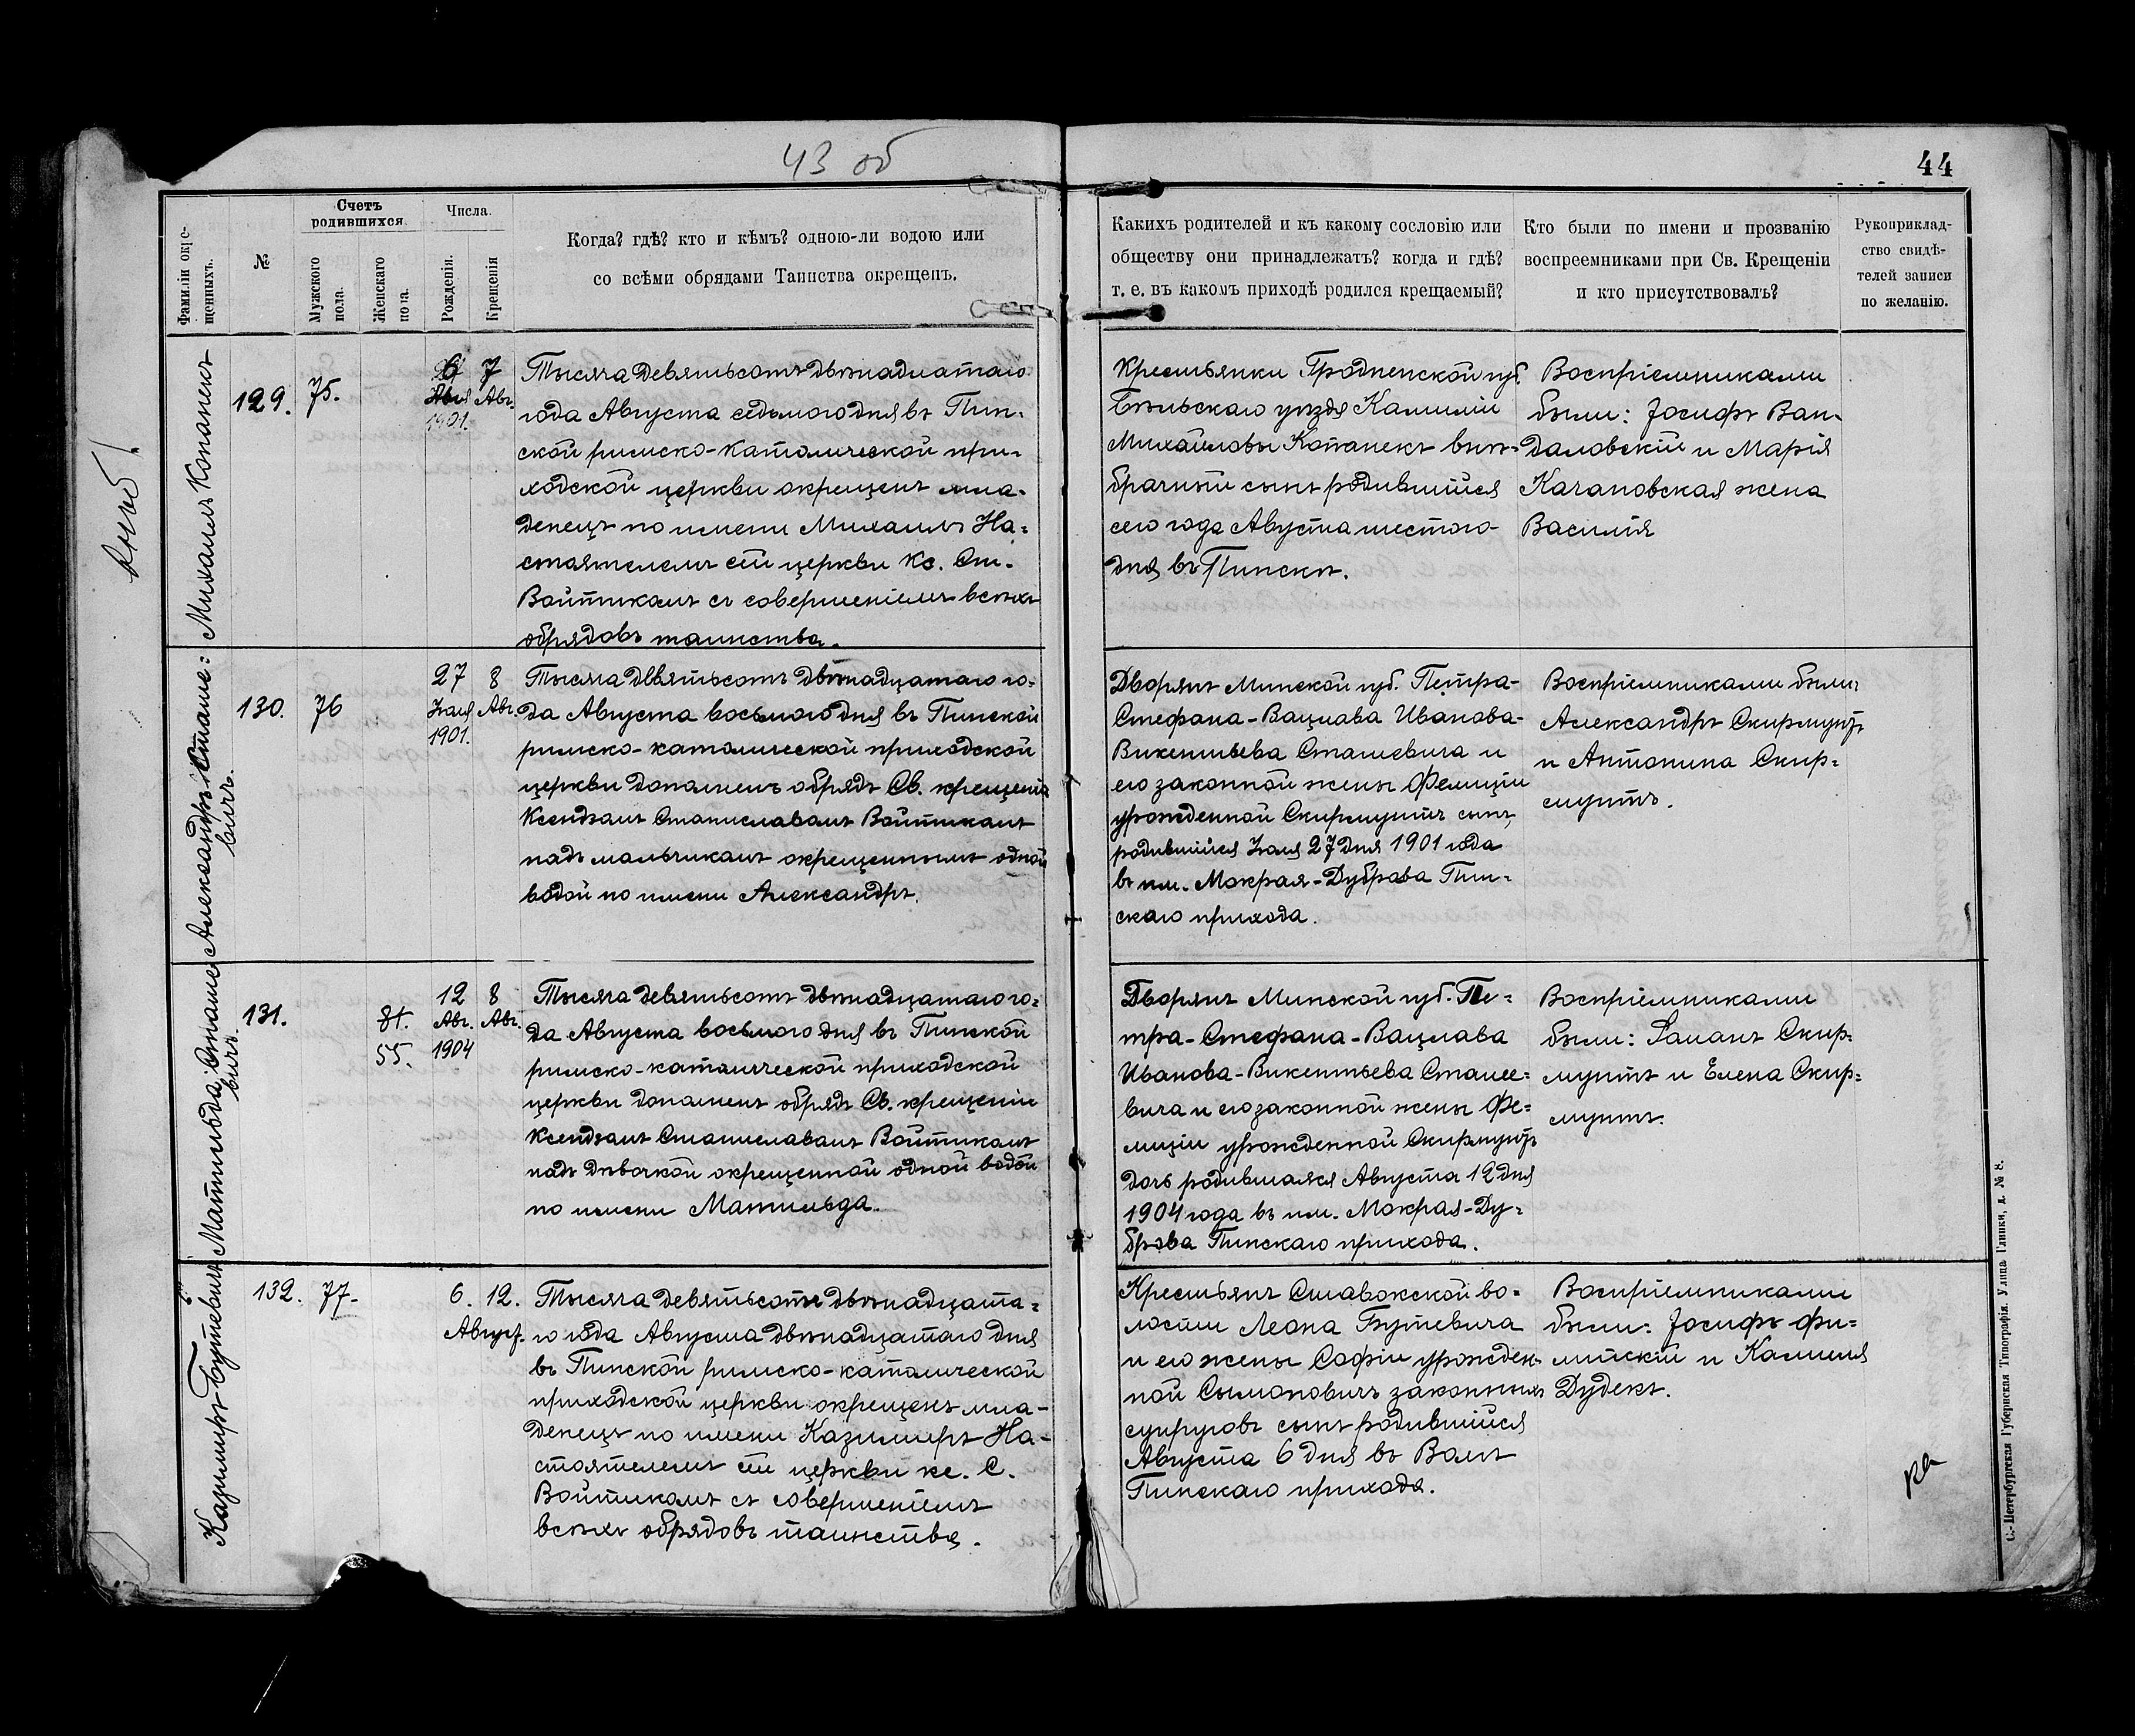 43 об
44
Фамиліи окре-
щенныхъ.
№
Счетъ
родившихся.
Мужского
пола.
Женскаго
пола.
Числа.
Рожденія.
Крещенія
Когда? гдѣ? кто и кѣмъ? одною-ли водою или
со всѣми обрядами Таинства окрещенъ.
Какихъ родителей и къ какому сословію или
обществу они принадлежатъ? когда и гдѣ?
т. е. въ какомъ приходѣ родился крещаемый?
Кто были по имени и прозванію
воспреемниками при Св. Крещеніи
и кто присутствовалъ?
Рукоприклад-
ство свидѣ-
телей записи
по желанію.
внѣб!
Михаилъ Копанекъ
129.
75.
6
1901.
7
Авг.
Тысяча девятьсотъ двѣнадцатаго
года Августа седьмого дня въ Пин-
ской римско-католической при-
ходской церкви окрещенъ мла-
денецъ по имени Михаилъ На=
стоятелемъ сей церкви Кс. Ст.
Войтикамъ съ совершеніемъ всѣхъ
обрядовъ таинства.
Крестьянки Гродненской губ.
Бѣльскаго уѣзда Камиліи
Михайловы Копанекъ внѣ-
брачный сынъ родившійся
сего года Августа шестого
дня въ Пинскѣ.
Воспріемниками
были: Іосифъ Ван-
даловскій и Марія
Качановская жена
Василія
Александръ Сташе=
вичъ.
130.
76
27
Іюля
1901.
8
Авг.
Тысяча девятьсотъ двѣнадцатаго го-
да Августа восьмого дня въ Пинской
римско-католической приходской
церкви дополненъ обрядъ Св. крещенія
Ксендзамъ Станиславамъ Войтикамъ
надъ мальчикамъ окрещеннымъ одной
водой по имени Александръ.
Дворянъ Минской губ. Петра-
Стефана-Вацлава Иванова-
Викентьева Сташевича и
его законной жены Фелиціи
урожденной Скирмунтъ сынъ,
родившійся Іюля 27 дня 1901 года
въ им. Мокрая-Дубрава Пин-
скаго прихода.
Воспріемниками были
Александръ Скирмунтъ
и Антонина Скир=
мунтъ.
Матильда Сташе
вичъ
131.
81.
55.
12
Авг.
1904
8
Авг.
Тысяча девятьсотъ двѣнадцатаго го=
да Августа восьмого дня въ Пинской
римско-католической приходской
церкви дополненъ обрядъ Св. крещенія
Ксендзамъ Станиславамъ Войтикамъ
надъ дѣвочкой окрещенной одной водой
по имени Матильда.
Дворянъ Минской губ. Пе=
тра-Стефана-Вацлава
Иванова-Викентьева Сташе=
вича и его законной жены Фе=
лиціи урожденной Скирмунтъ
дочь родившаяся Августа 12 дня
1904 года въ им. Мокрая-Ду=
брава Пинскаго прихода.
Воспріемниками
были: Раманъ Скир=
мунтъ и Елена Скир=
мунтъ.
Казиміръ Бутевичъ
132.
77-
6.
Август.
12.
Тысяча девятьсотъ двѣнадцата=
го года Августа двѣнадцатаго дня
въ Пинской римско-католической
приходской церкви окрещенъ мла-
денецъ по имени Казиміръ На-
стоятелемъ сей церкви кс. С.
Войтикамъ съ совершеніемъ
всѣхъ обрядовъ таинства.
Крестьянъ Ставокской во=
лости Леона Бутевича
и его жены Софіи урожден-
ной Сымоновичъ законныхъ
супруговъ сынъ родившійся
Августа 6 дня въ
Пинскаго прихода.
Воспріемниками
были: Іосифъ Фи=
линскій и Камилія
Дудекъ.
С.-Петербургская Губернская Типографія. Улица Глинки, д. № 8.